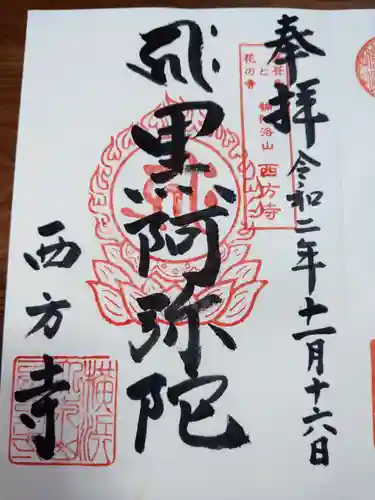 奉拝
令和二年十一月十六日
補陀洛山
西方寺
花の寺
黒阿弥陀
西方寺
横浜